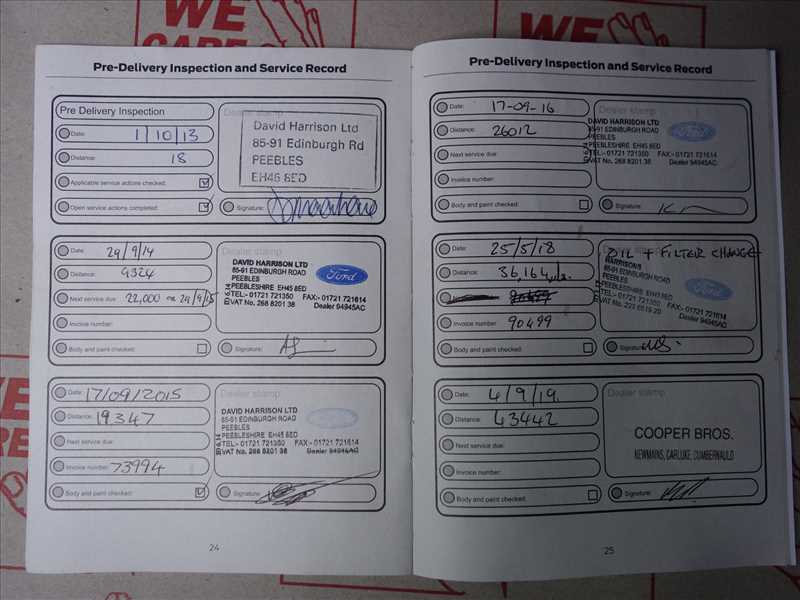 WE
CARE
WE
Pre-Delivery Inspection and Service Record
Pre Delivery Inspection
Date: 1/10/13
Distance: 18
Applicable service actions checked:
Open service actions completed:
Dealer stamp
David Harrison Ltd
85-91 Edinburgh Rd
PEEBLES
EH45 8ED
Signature:
Date: 29/9/14
Distance: 9324
Next service due: 22,000 or 29/9/15
Invoice number:
Body and paint checked:
DAVID HARRISON LTD
85-91 EDINBURGH ROAD
PEEBLES
PEEBLESHIRE EH45 8ED
TEL:- 01721 721350 FAX:- 01721 721614
VAT No. 268 8201 38 Dealer 94945AC
Ford
Signature:
Date: 17/09/2015
Distance: 19347
Next service due:
Invoice number: 73994
Body and paint checked:
Dealer stamp
DAVID HARRISON LTD
85-91 EDINBURGH ROAD
PEEBLES
PEEBLESHIRE EH45 8ED
TEL:- 01721 721350 FAX:- 01721 721614
VAT No. 268 8201 38 Dealer 94945AC
Signature:
24
Pre-Delivery Inspection and Service Record
Date: 17-09-16
Distance: 26012
Next service due:
Invoice number:
Body and paint checked:
Dealer stamp
DAVID HARRISON LTD
85-91 EDINBURGH ROAD
PEEBLES
PEEBLESHIRE EH45 8ED
TEL:- 01721 721350 FAX:- 01721 721614
VAT No. 268 8201 38 Dealer 94945AC
Ford
Signature:
Date: 25/5/18
Distance: 36,164 mls.
Invoice number: 90499
Body and paint checked:
OIL + FILTER CHANGE
HARRISONS
85-91 EDINBURGH ROAD
PEEBLES
PEEBLESHIRE EH45 8ED
TEL:- 01721 721350 FAX:- 01721 721614
Dealer 94945AC
Ford
Signature:
Date: 4/9/19.
Distance: 43442
Next service due:
Invoice number:
Body and paint checked:
Dealer stamp
COOPER BROS.
NEWMAINS, CARLUKE, CUMBERNAULD
Signature:
25